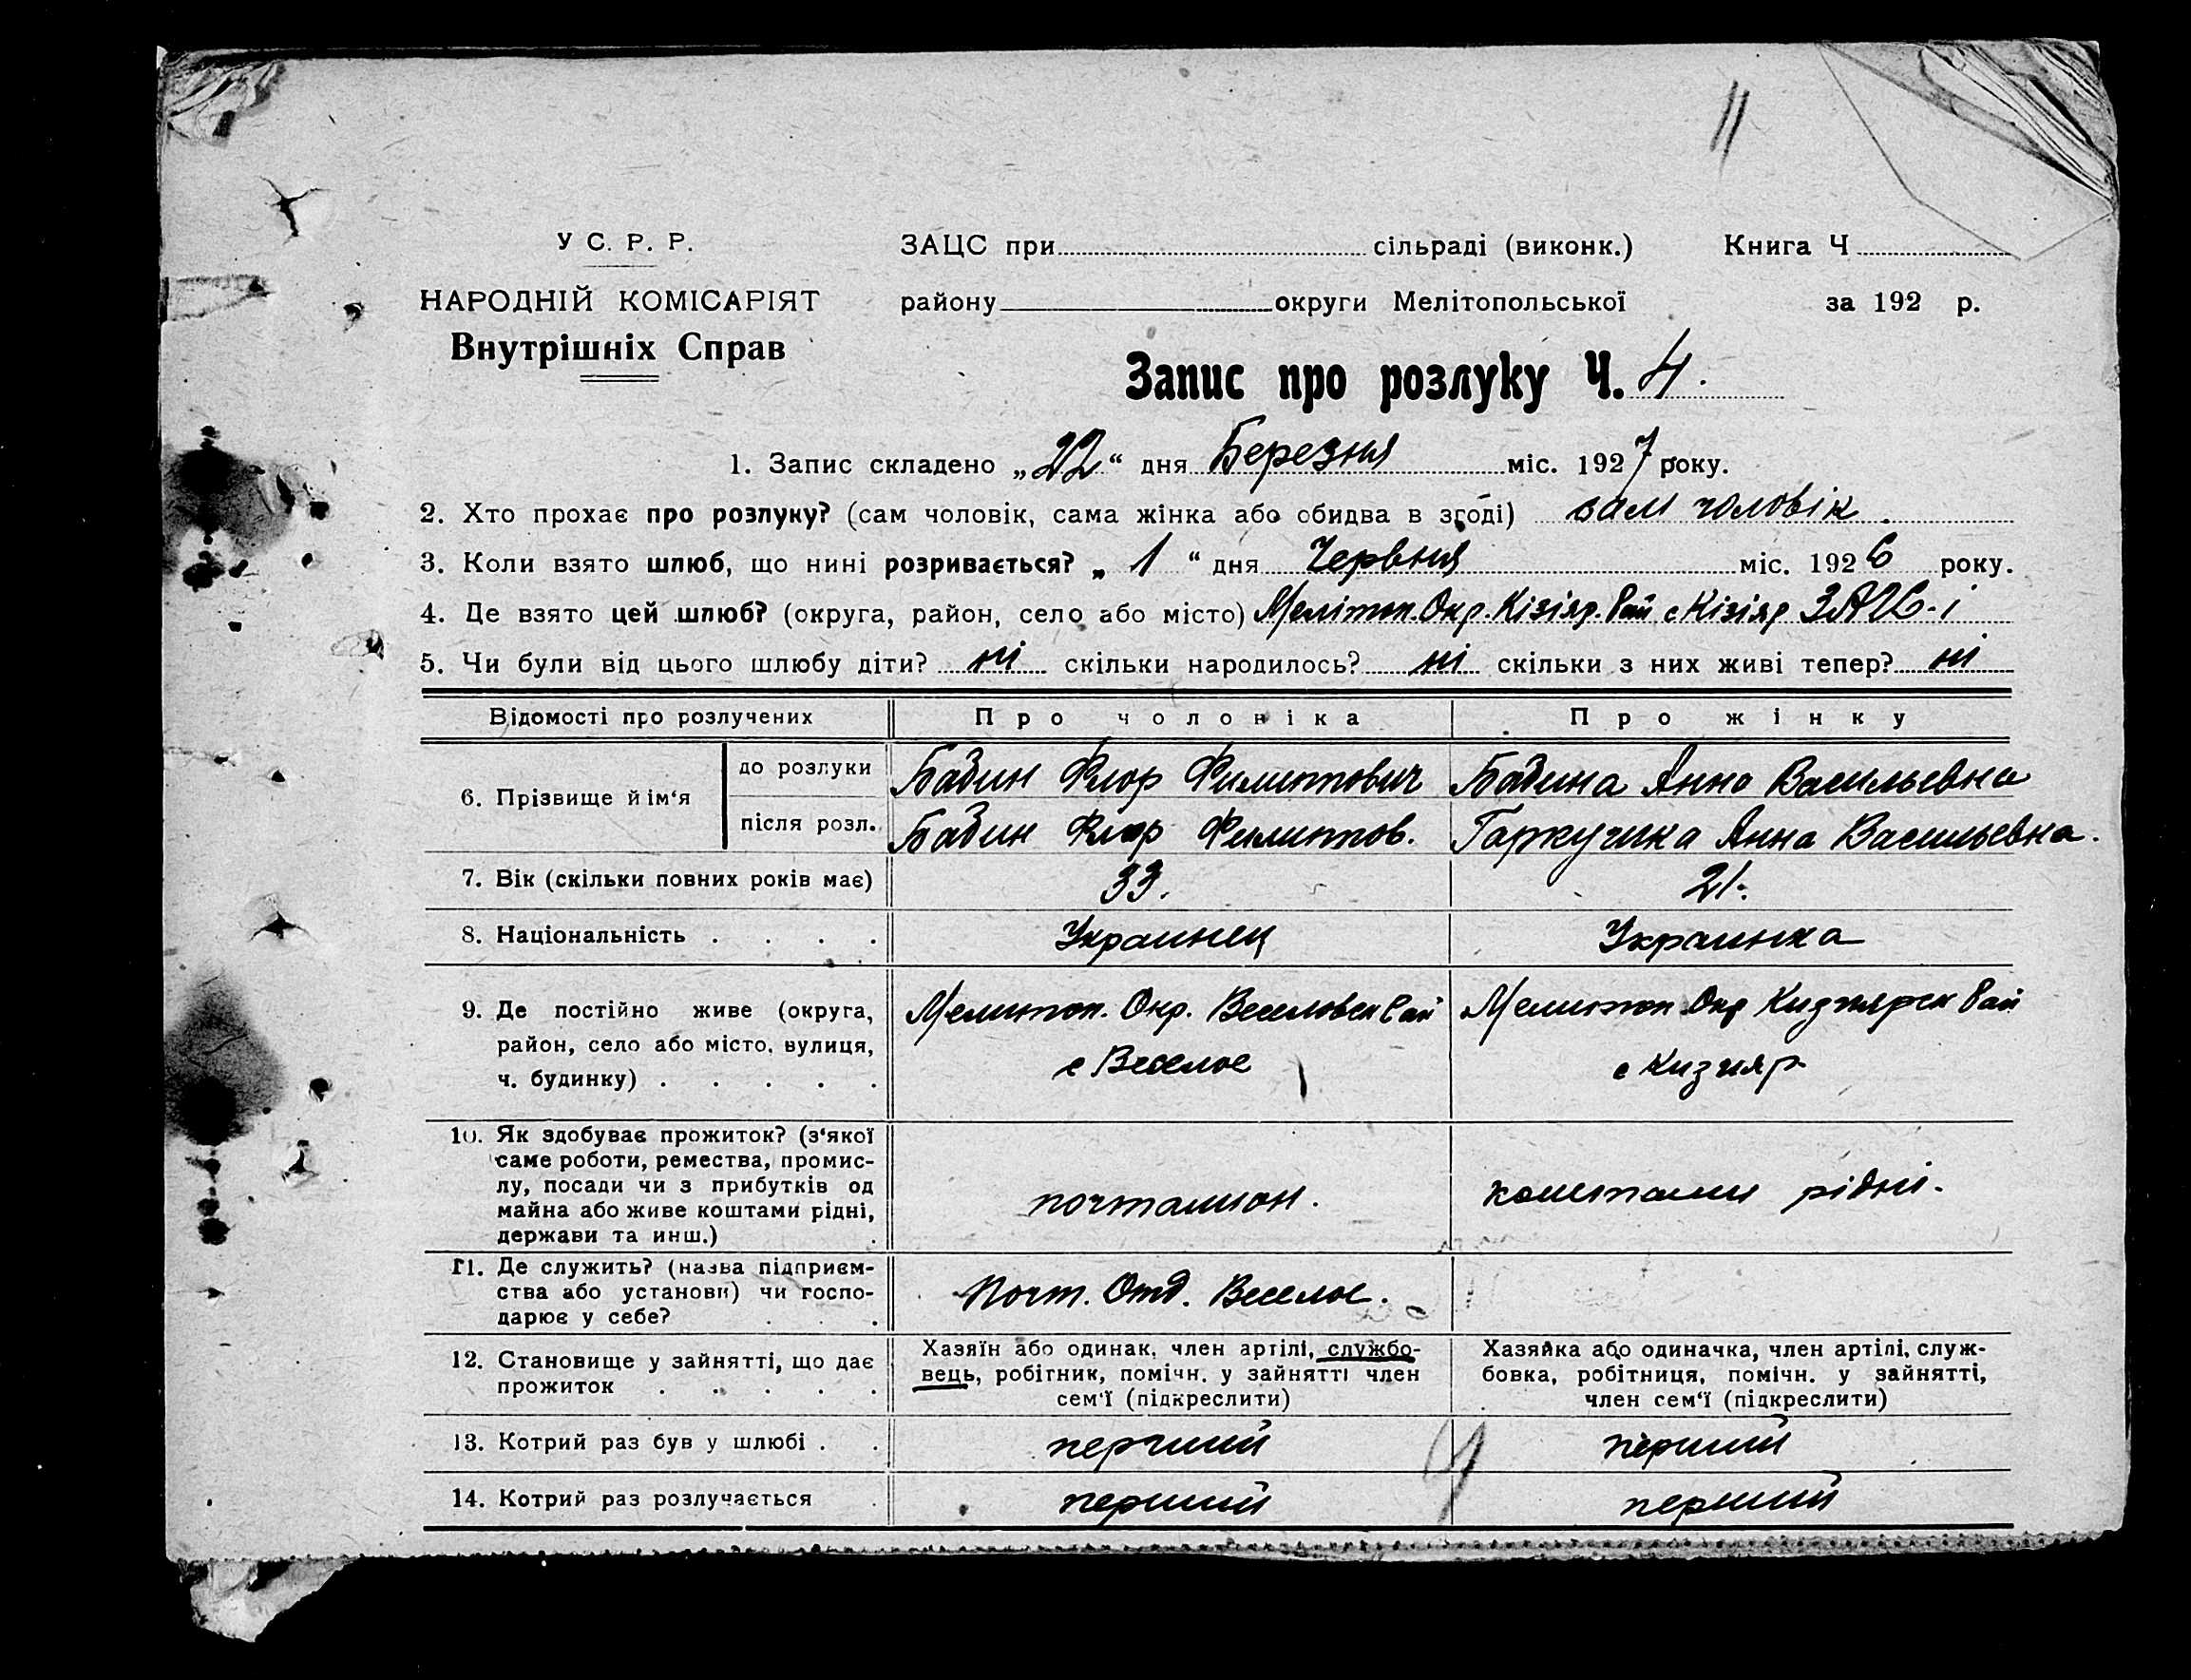 11
У С. Р. Р.
НАРОДНІЙ КОМІСАРІЯТ
Внутрішніх Справ
ЗАЦС при сільраді (виконк.) Книга Ч
району округи Мелітопольської за 192 р.
Запис про розлуку Ч. 4.
1. Запис складено „22“ дня Березня міс. 1927 року.
2. Хто прохає про розлуку? (сам чоловік, сама жінка або обидва в згоді) сам чоловік.
3. Коли взято шлюб, що нині розривається? „ 1 “ дня Червня міс. 1926 року.
4. Де взято цей шлюб? (округа, район, село або місто) Мелітоп. Окр. Кізіяр. Рай с Кізіяр ЗАЦС-і
5. Чи були від цього шлюбу діти? ні скільки народилось? ні скільки з них живі тепер? ні
Відомості про розлучених Про чоловіка Про жінку
6. Прізвище й ім‘я
до розлуки Бабин Флор Филиппович Бабина Анна Васильевна
після розл. Бабин Флор Филиппов. Гаркучика Анна Васильевна.
7. Вік (скільки повних років має) 33. 21.
8. Національність . . . . Украинец Украинка
9. Де постійно живе (округа, Мелитоп. Окр. Веселовск Рай Мелитоп Окр Кизиярск Рай
район, село або місто, вулиця, с Веселое с Кизияр
ч. будинку) . . . . .
10. Як здобуває прожиток? (з‘якої
саме роботи, ремества, промис-
лу, посади чи з прибутків од почталион. коштами рідні.
майна або живе коштами рідні,
держави та инш.) .
11. Де служить? (назва підприєм-
ства або установи) чи госпо- Почт. Отд. Веселое.
дарює у себе? . . .
12. Становище у зайнятті, що дає
прожиток . . . . .
Хазяїн або одинак, член артілі, службо-
вець, робітник, помічн. у зайнятті член
сем‘ї (підкреслити)
Хазяйка або одиначка, член артілі, служ-
бовка, робітниця, помічн. у зайнятті,
член сем‘ї (підкреслити)
13. Котрий раз був у шлюбі . . перший перший
14. Котрий раз розлучається . перший перший